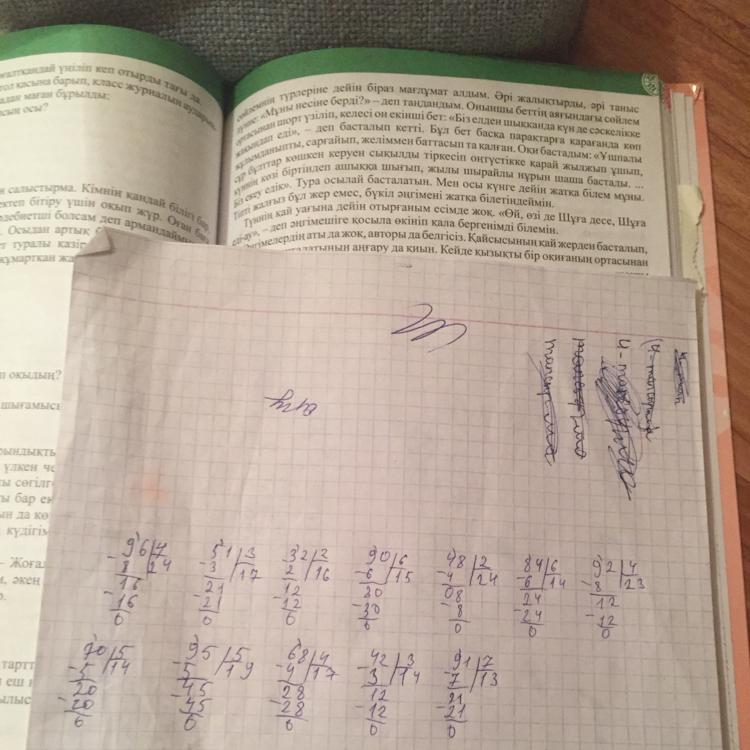 ғалтқандай үңіліп кеп отырды тағы да.
тол қасына барып, класс журналын
адан маған бұрылды:
сын осы?
н салыстырма. Кімнің қандай білігі бар,
ектеп бітіру үшін оқып жүр. Оған
дебиетші болсам деп армандаймын
. Осыдан артық
ет туралы қазір
құмартқан жа
п оқыдың?
шығамысы
рындықты
үлкен че
ты сөгілге
ты бар ең
ын да көр
күдігім
– Жоғал
м, әкен
р.
тартт
н еш н
ылыс
сөйлемнің түрлеріне дейін біраз мағлұмат алдым. Әрі жалықтырды, әрі таныс
дүние: «Мұны несіне берді?» – деп таңдандым. Оныншы беттің аяғындағы сөйлем
ортасынан шорт үзіліп, келесі он екінші бет: «Біз елден шыққанда күн де сәскелікке
жақындап еді», – деп басталып кетті. Бұл бет басқа парақтарға қарағанда көп
жұлымданыпты, сарғайып, желіммен баттасып та қалған. Оқи бастадым: «Үшпалы
сұр бұлттар көшкен керуен сықылды тіркесіп оңтүстікке қарай жылжып ұшып,
күннің көзі біртіндеп ашыққа шығып, жылы шырайлы нұрын шаша бастады. ...
Біз екеу едік». Тура осылай басталатын. Мен осы күнге дейін жатқа білем мұны.
Тіпті жалғыз бұл жер емес, бүкіл әңгімені жатқа білетіндеймін.
Түннің қай уағына дейін отырғаным есімде жоқ. «Өй, өзі де Шұға десе, Шұға
еді-ау», – деп әңгімешіге қосыла өкініп қала бергенімді білемін.
Әңгімелердің аты да жоқ, авторы да белгісіз. Қайсысының қай жерден басталып,
аяқталатынын аңғару да қиын. Кейде қызықты бір оқиғаның ортасынан
96 4
- 8 24
16
- 16
0
51 3
- 3 17
21
- 21
0
32 2
2 16
12
- 12
0
90 6
- 6 15
30
- 30
0
48 2
- 4 24
08
- 8
0
84 6
- 6 14
24
- 24
0
92 4
- 8 23
12
- 12
0
70 5
- 5 14
20
- 20
0
95 5
- 5 19
45
- 45
0
68 4
- 4 17
28
- 28
0
42 3
- 3 14
12
- 12
0
91 7
- 7 13
21
- 21
0